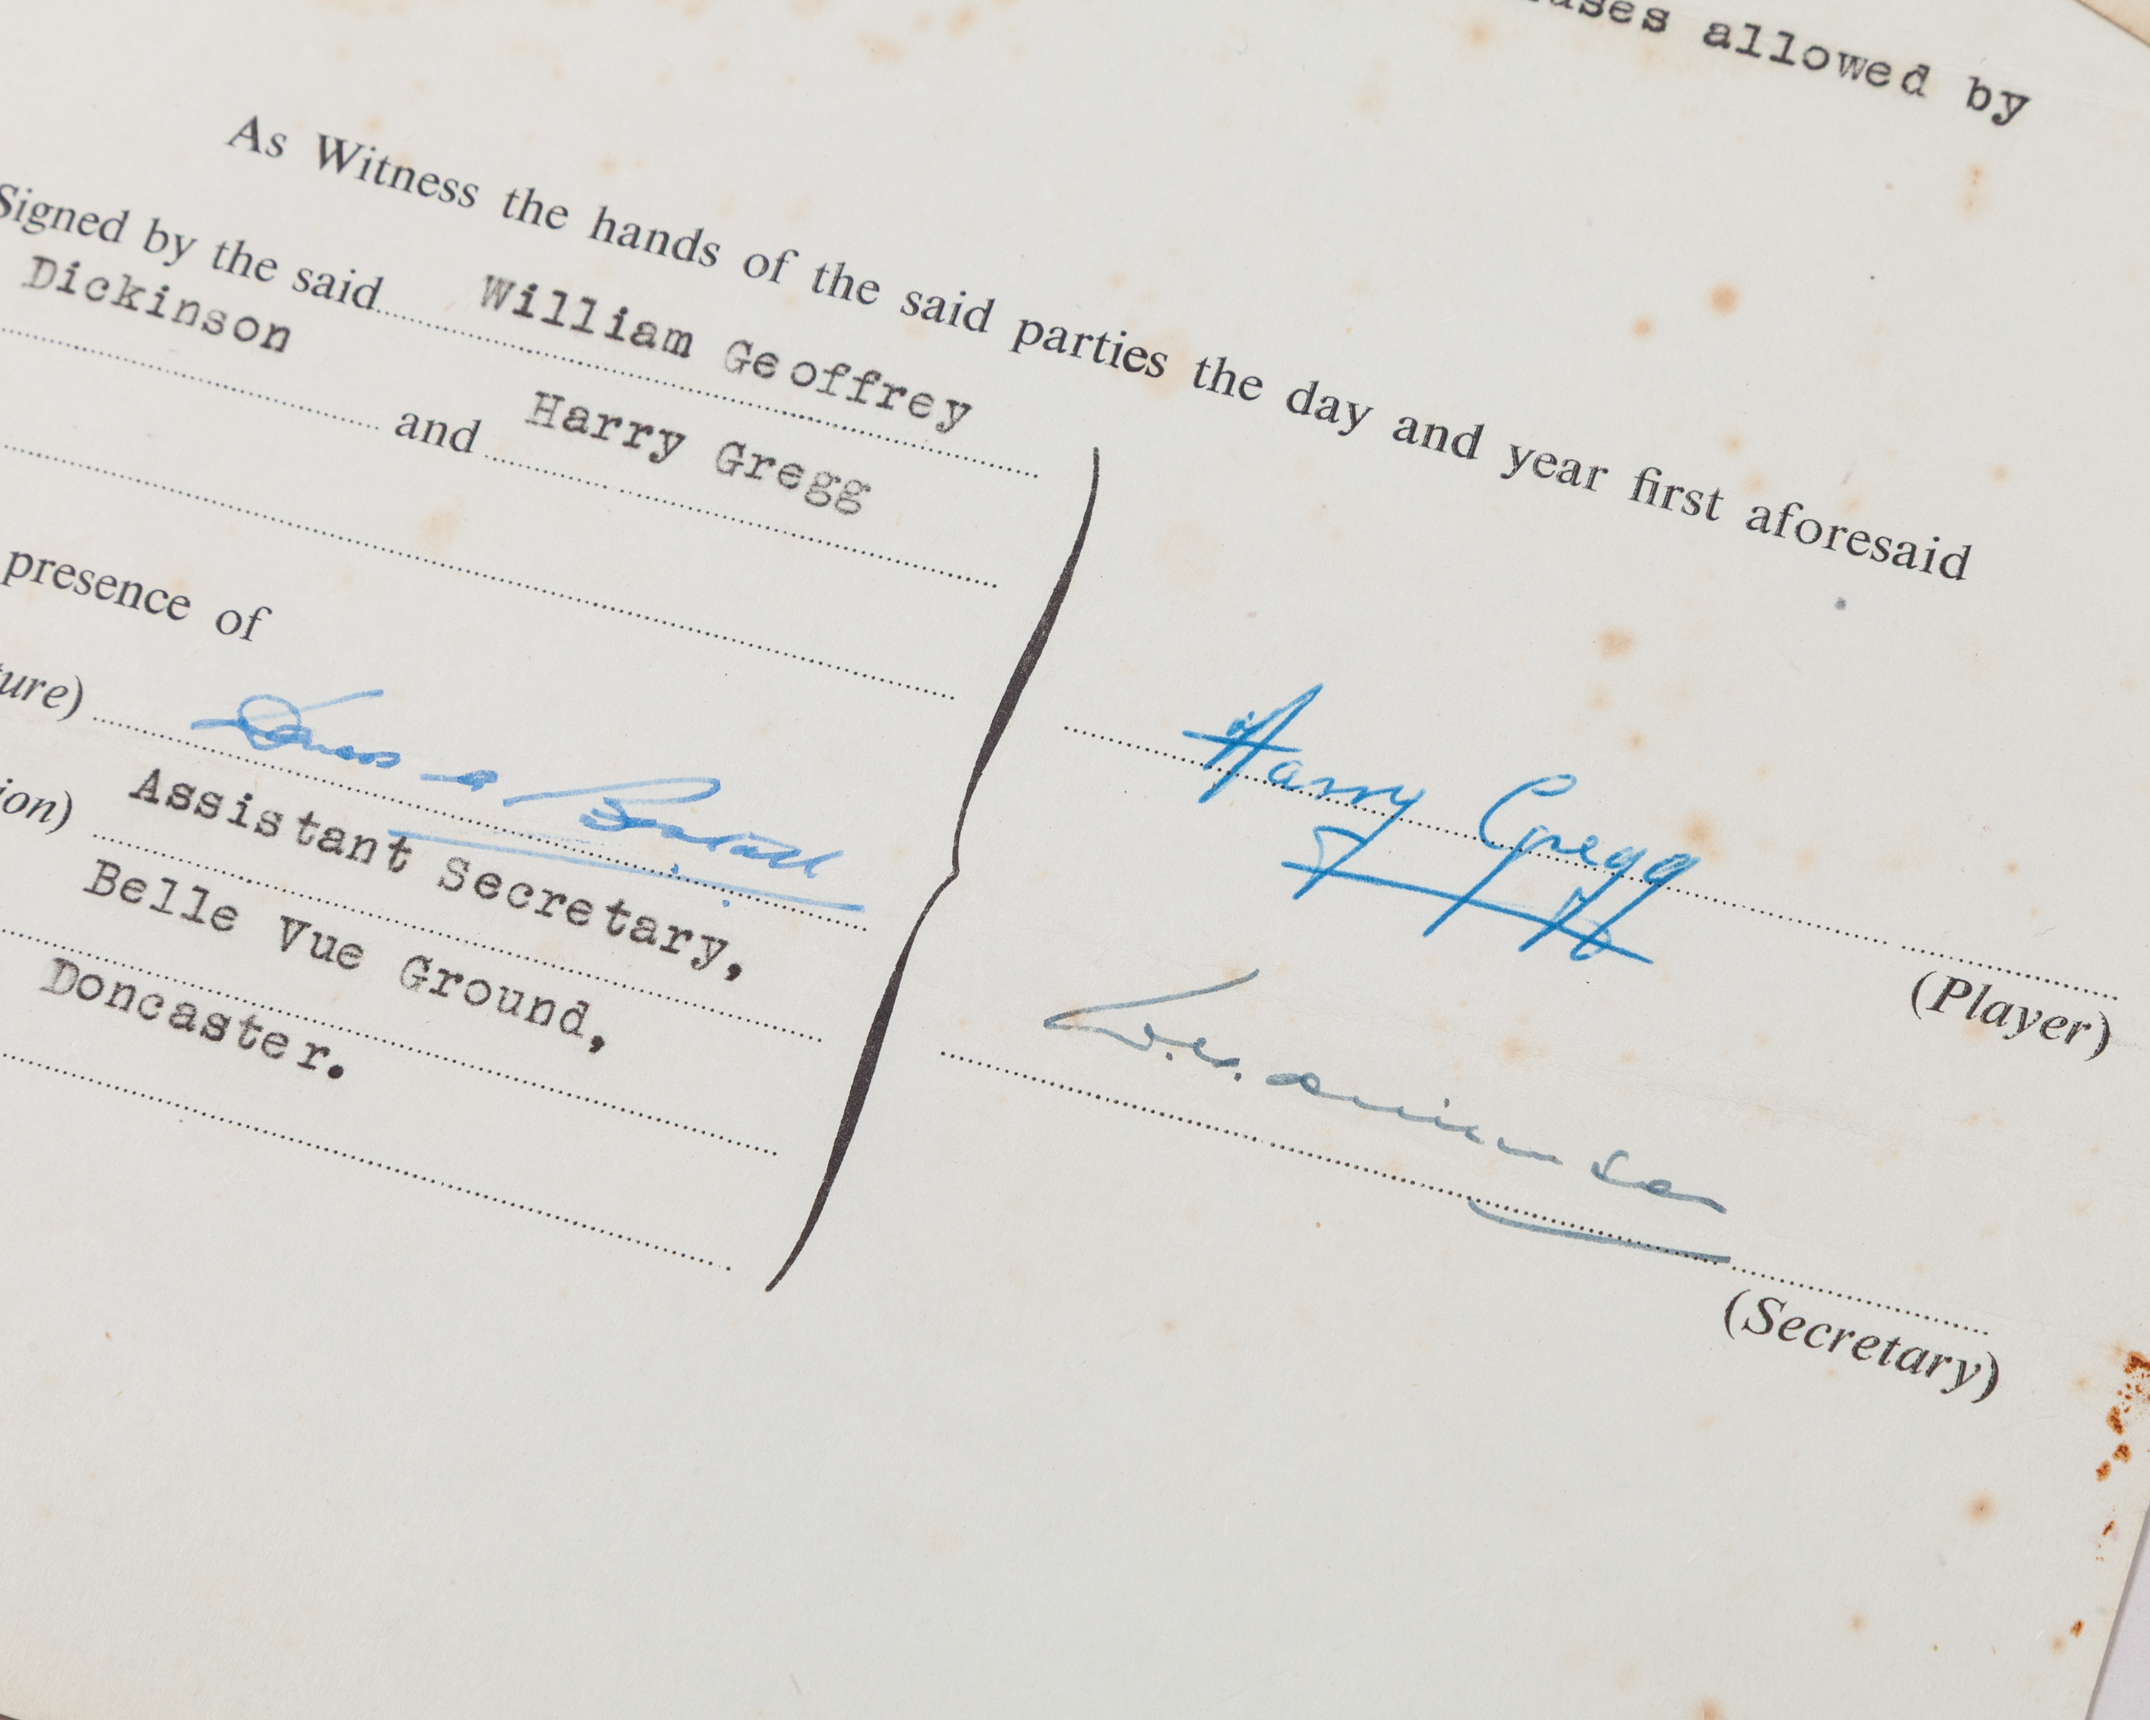 allowed by
As Witness the hands of the said parties the day and year first aforesaid
Signed by the said William Geoffrey
Dickinson
and Harry Gregg
presence of
Assistant Secretary,
Belle Vue Ground,
Doncaster.
Harry Gregg
(Player)
(Secretary)